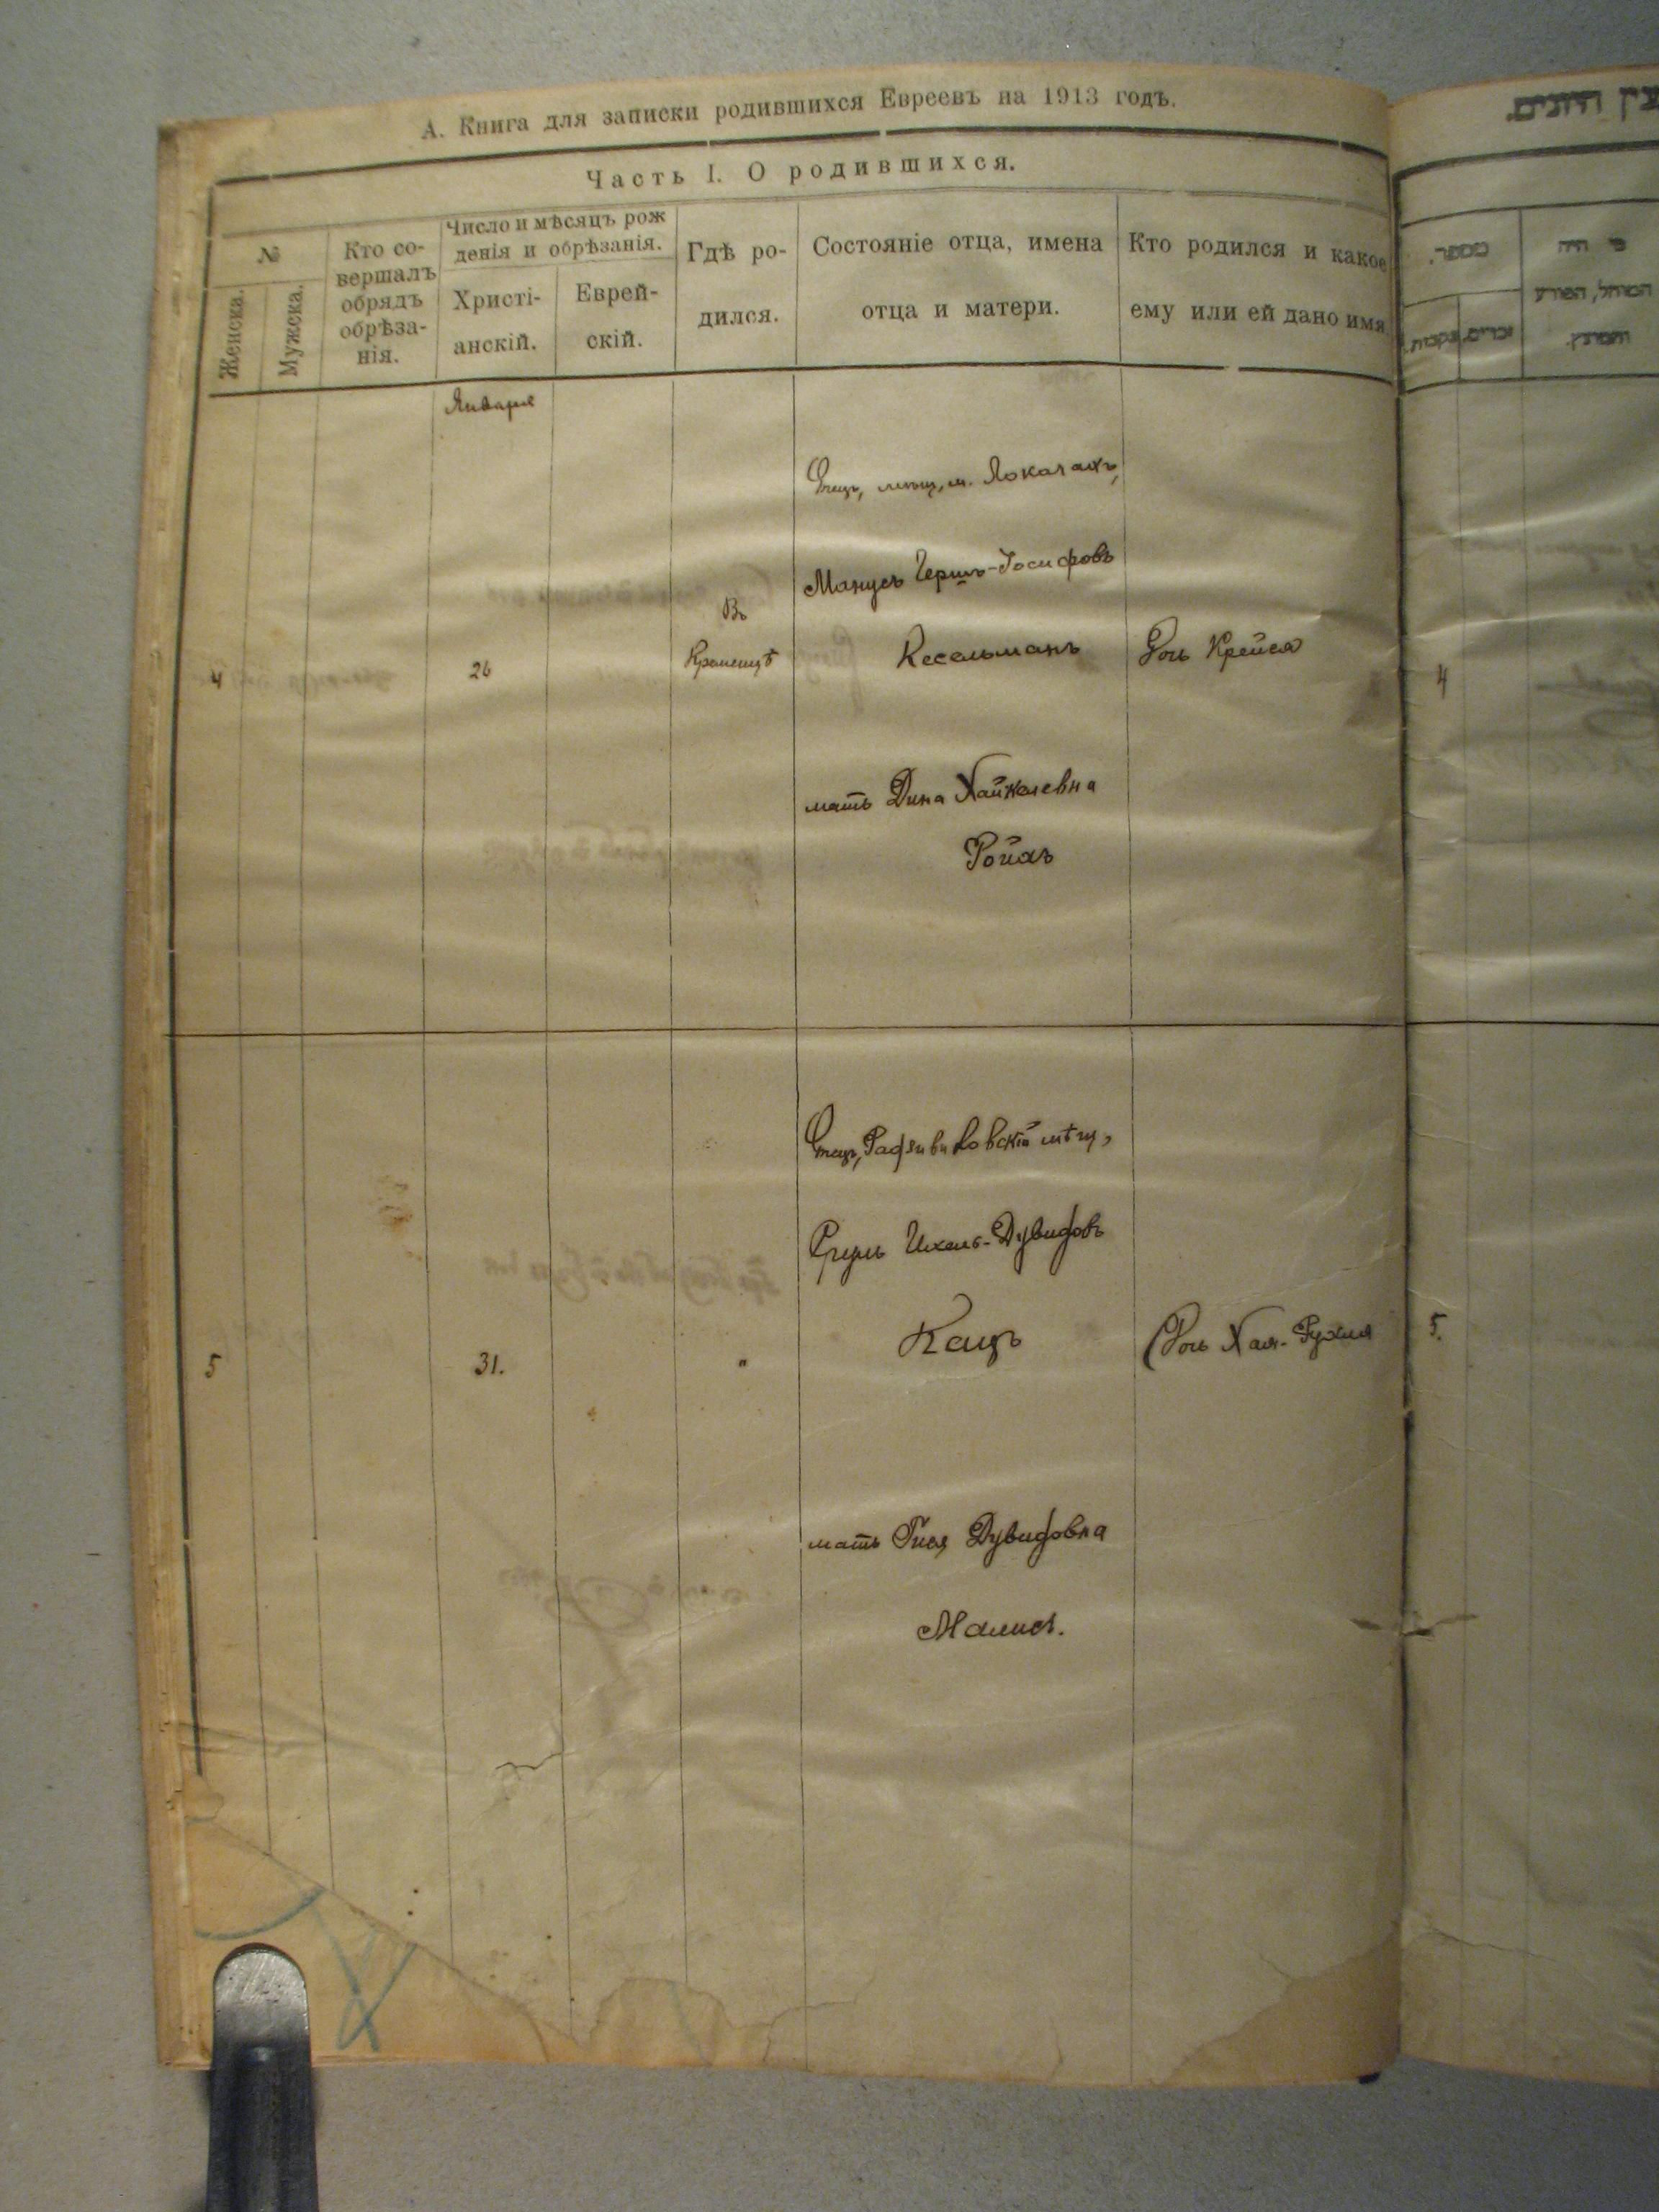 А. Книга для записки родившихся Евреевъ на 1913 годъ.
Часть I. О родившихся.
№
Женска.
Мужска.
Кто со-
вершалъ
обрядъ
обрѣза-
нія.
Число и мѣсяцъ рож
денія и обрѣзанія.
Христі-
анскій.
Еврей-
скій.
Гдѣ ро-
дился.
Состояніе отца, имена
отца и матери.
Кто родился и какое
ему или ей дано имя
Января
4
26
Въ
Кременцѣ
Отецъ, мѣщ. м. Локачахъ,
Манусъ Гершъ-Іосифовъ
Кесельманъ
мать Дина Хайкелевна
Ройхъ
Дочь Крейса
4
5
31.
"
Отецъ, Радзивиловскій мѣщ,
Сруль Ихель-Дувидовъ
Кацъ
мать Дувидовна
Малис.
Дочь Хая-Рухля
5.
מספר.
זכרים.
נקבות.
מי היה
המוהל, הפורע
והמוצץ.